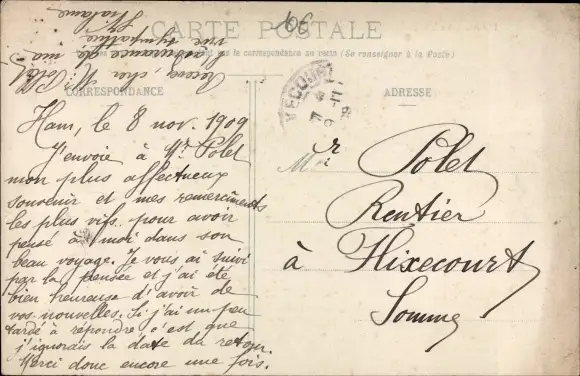 CARTE POSTALE
la correspondance au recto (Se renseigner à la Poste)
CORRESPONDANCE
ADRESSE
Ham, le 8 nov. 1909
J'envoie à Mr Polet
mon plus affectueux
souvenir et mes remerciments
les plus vifs pour avoir
pensé à moi dans son
beau voyage. Je vous ai suivi
par la pensée et j'ai été
bien heureuse d'avoir de
vos nouvelles. Si j'ai un peu
tardé à répondre c'est que
j'ignorais la date du retour.
Merci donc encore une fois.
Recevez, cher Mr Polet
l'assurance de ma
sympathie
Mr Polet
Rentier
à Hixecourt
Somme